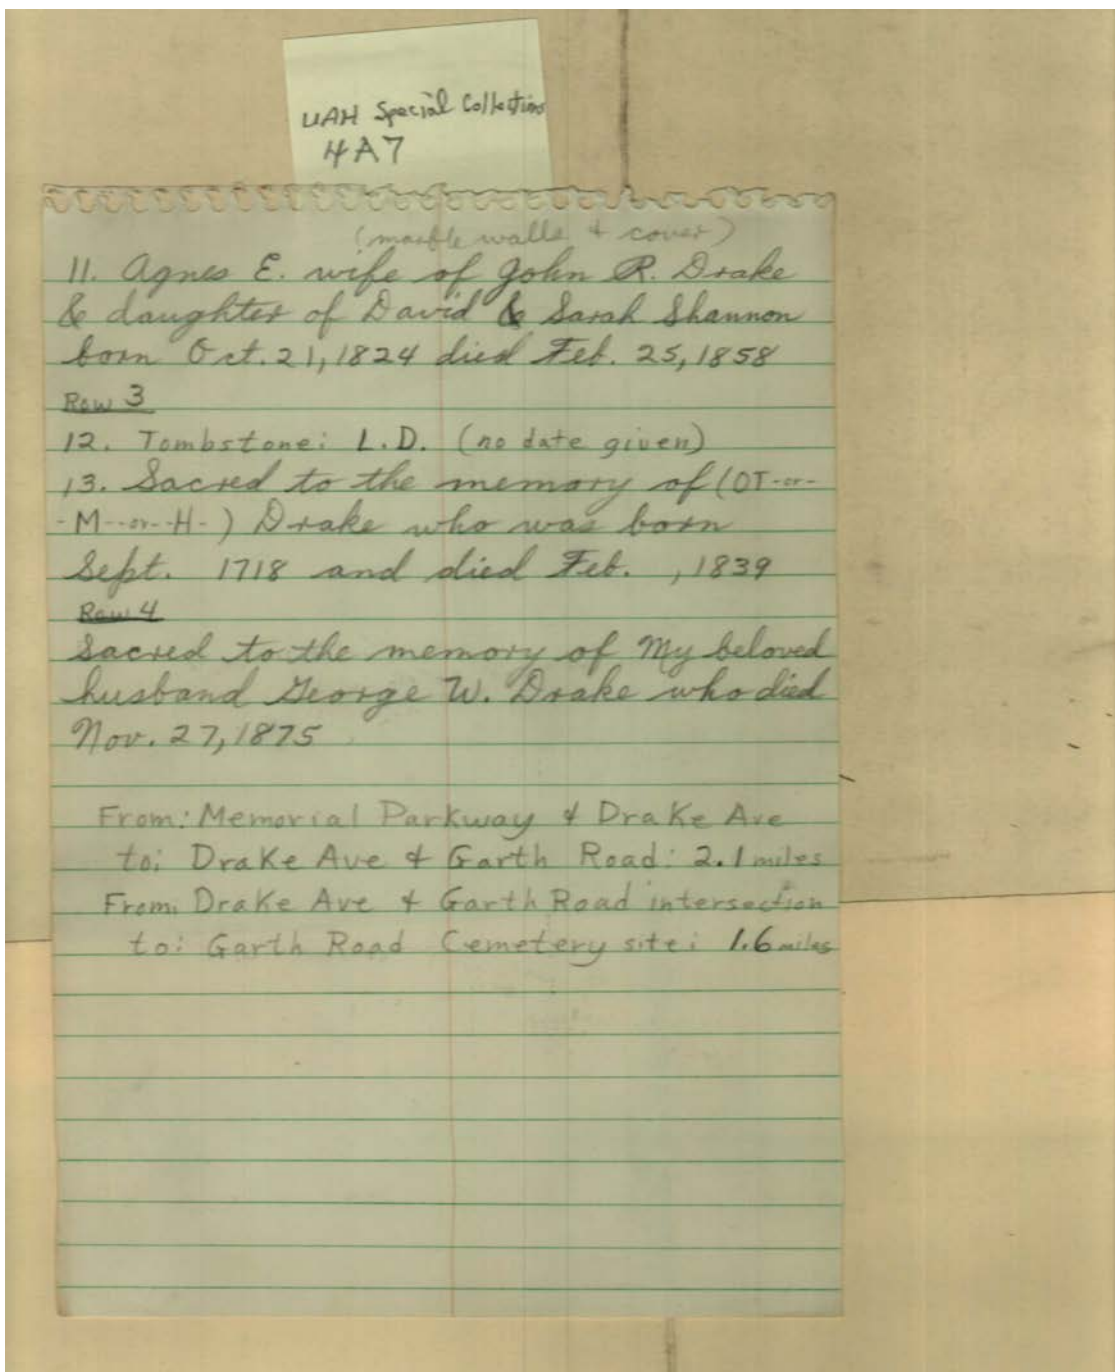 UAH Special Collections
4A7
(marble walls & cover)
11. Agnes E. wife of John R. Drake
& daughter of David & Sarah Shannon
born Oct. 21, 1824 died Feb. 25, 1858
Row 3
12. Tombstone: L.D. (no date given)
13. Sacred to the memory of (OT-or-
-M--or--H-) Drake who was born
Sept. 1718 and died Feb. , 1839
Row 4
Sacred to the memory of My beloved
husband George W. Drake who died
Nov. 27, 1875
From: Memorial Parkway & Drake Ave
to: Drake Ave & Garth Road: 2.1 miles
From: Drake Ave & Garth Road intersection
to: Garth Road Cemetery site: 1.6 miles